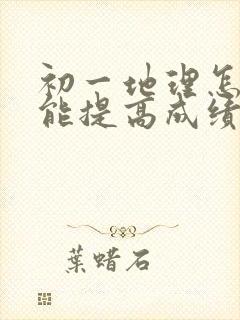 初一地理怎
能提高成绩
葉蜡石